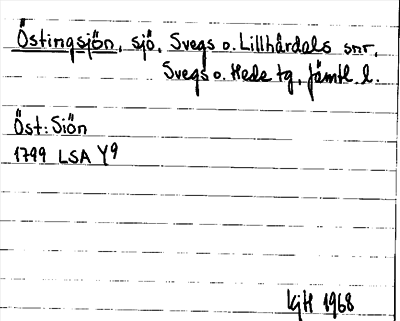 Östingsjön, sjö, Svegs o. Lillhärdals snr,
Svegs o. Hede tg, Jämtl. l.
Öst: Siön
1799 LSA Y9
LgH 1968